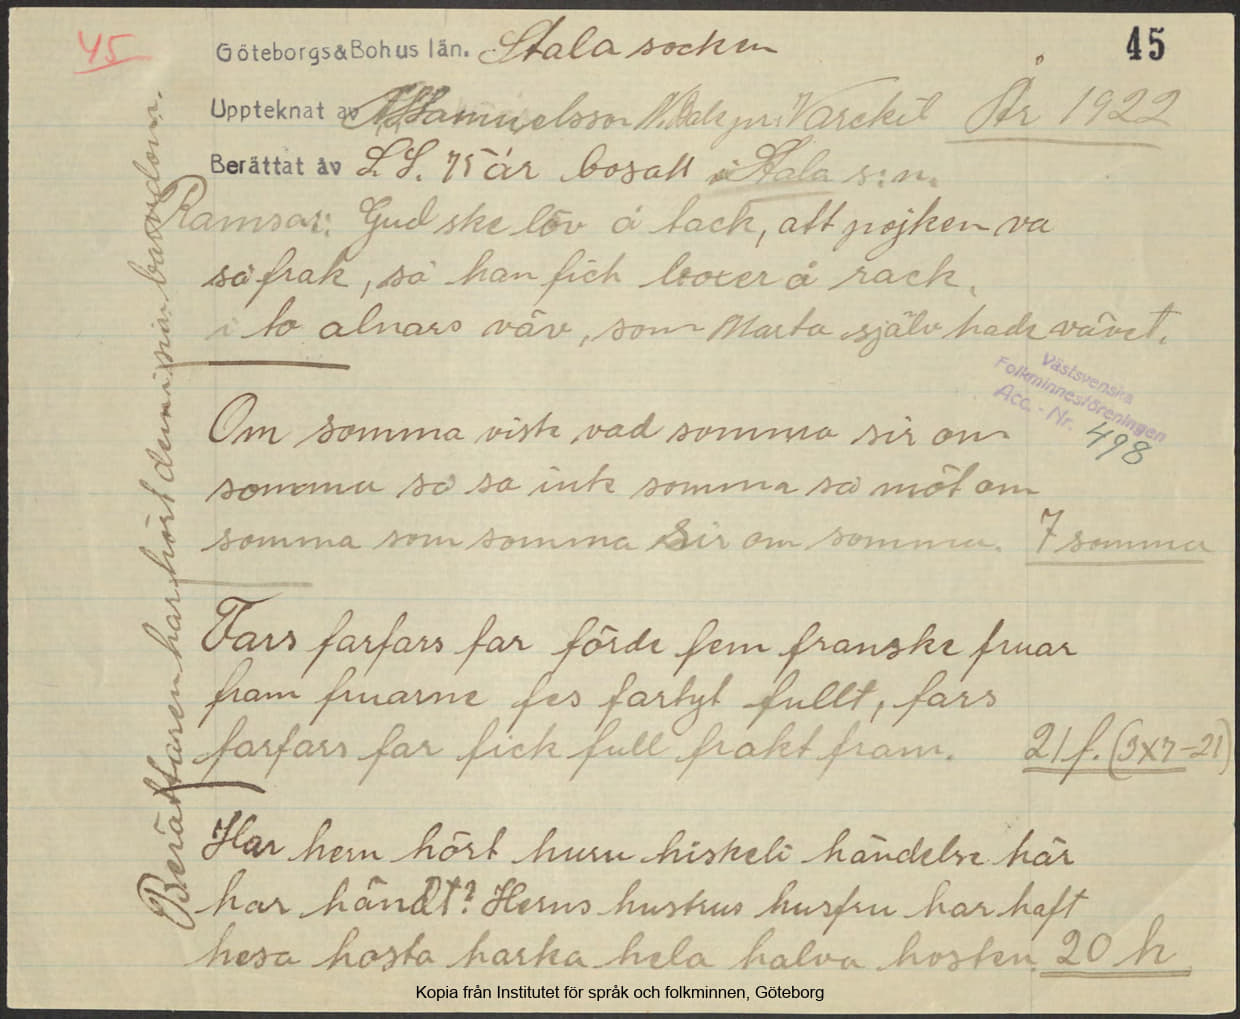 45
45
Göteborgs&Bohus län. Stala socken
Uppteknat av Samuelsson Varekil År 1922
Berättat av L.S. 75 år bosatt i Stala s:n.
Ramsor: Gud ske löv å tack, att pojken va
så frak, så han fich boxer å rack,
i to alnars väv, som Marta själv hade vävet.
Västsvenska
Folkminnesföreningen
Acc. - Nr. 498
Om somma viste vad somma sir om
somma så sa inte somma så möt om
somma som somma sir om somma. 7 somma
Fars farfars far förde fem franske fruar
fram fruarne fes fartyt fullt, fars
farfars far fick full frakt fram. 21 f. (3x7-21)
Har hern hört huru hiskeli händelse här
har händt? Herns hustrus husfru har haft
hesa hosta harka hela halva hosten. 20 h
Berättaren har hört dem i sin barndom.
Kopia från Institutet för språk och folkminnen, Göteborg